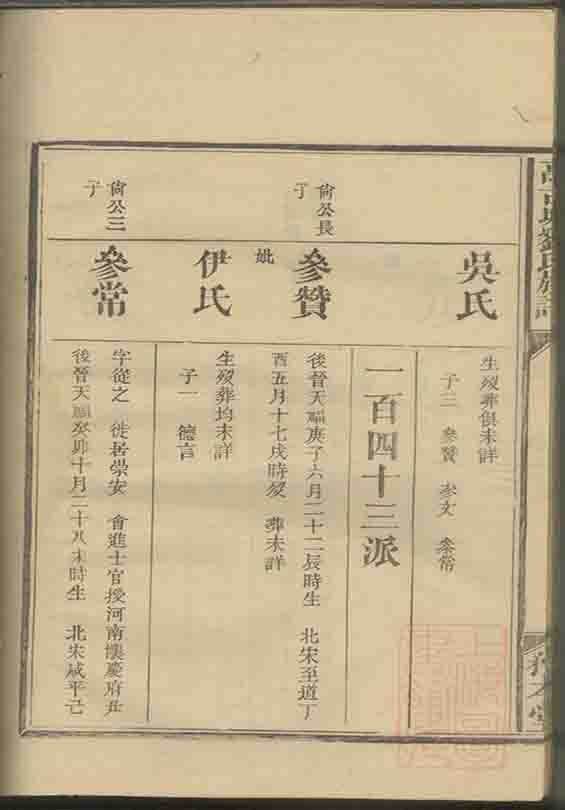 吳氏
生歿葬俱未詳
子三 參贊 參文 參常
一百四十三派
尙公長
子
參贊
後晉天福庚子六月二十二辰時生 北宋至道丁
酉五月十七戌時歿 葬未詳
妣
伊氏
生歿葬均未詳
子一 德言
尙公三
子
參常
字從之 徙居崇安 會進士官授河南懷慶府丞
後晉天福癸卯十月二十八未時生 北宋咸平己
劉氏族譜